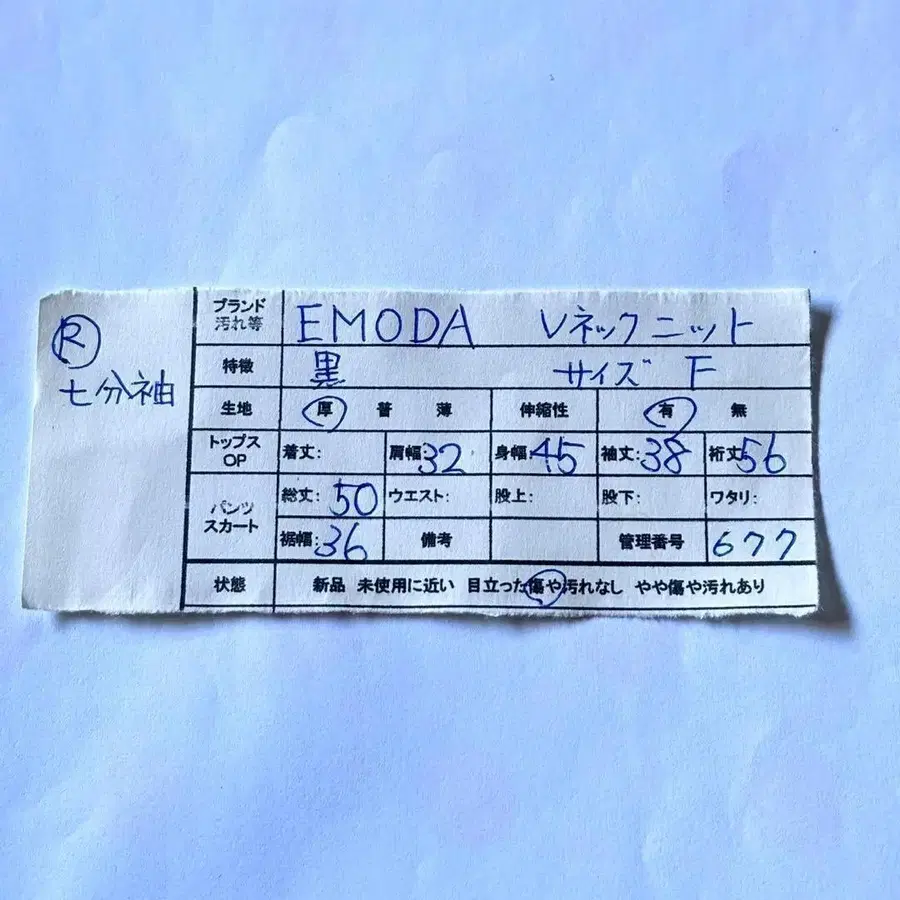 R
七分袖
ブランド 汚れ等 EMODA Vネックニット
特徴 黒 サイズ F
生地 厚 普 薄 伸縮性 有 無
トップス OP 着丈: 肩幅:32 身幅:45 袖丈:38 裄丈56
パンツ スカート 総丈:50 ウエスト: 股上: 股下: ワタリ:
裾幅:36 備考 管理番号 677
状態 新品 未使用に近い 目立った傷や汚れなし やや傷や汚れあり